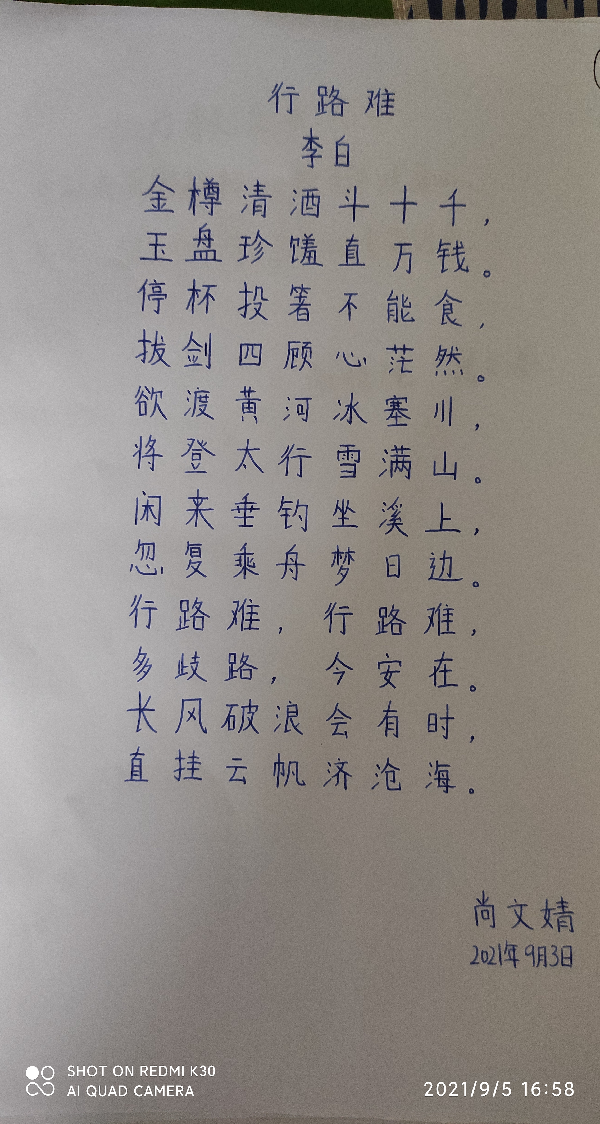 行路难
李白
金樽清酒斗十千,
玉盘珍馐直万钱。
停杯投箸不能食,
拔剑四顾心茫然。
欲渡黄河冰塞川,
将登太行雪满山。
闲来垂钓坐溪上,
忽复乘舟梦日边。
行路难,行路难,
多歧路,今安在。
长风破浪会有时,
直挂云帆济沧海。
尚文婧
2021年9月3日
SHOT ON REDMI K30
AI QUAD CAMERA
2021/9/5 16:58